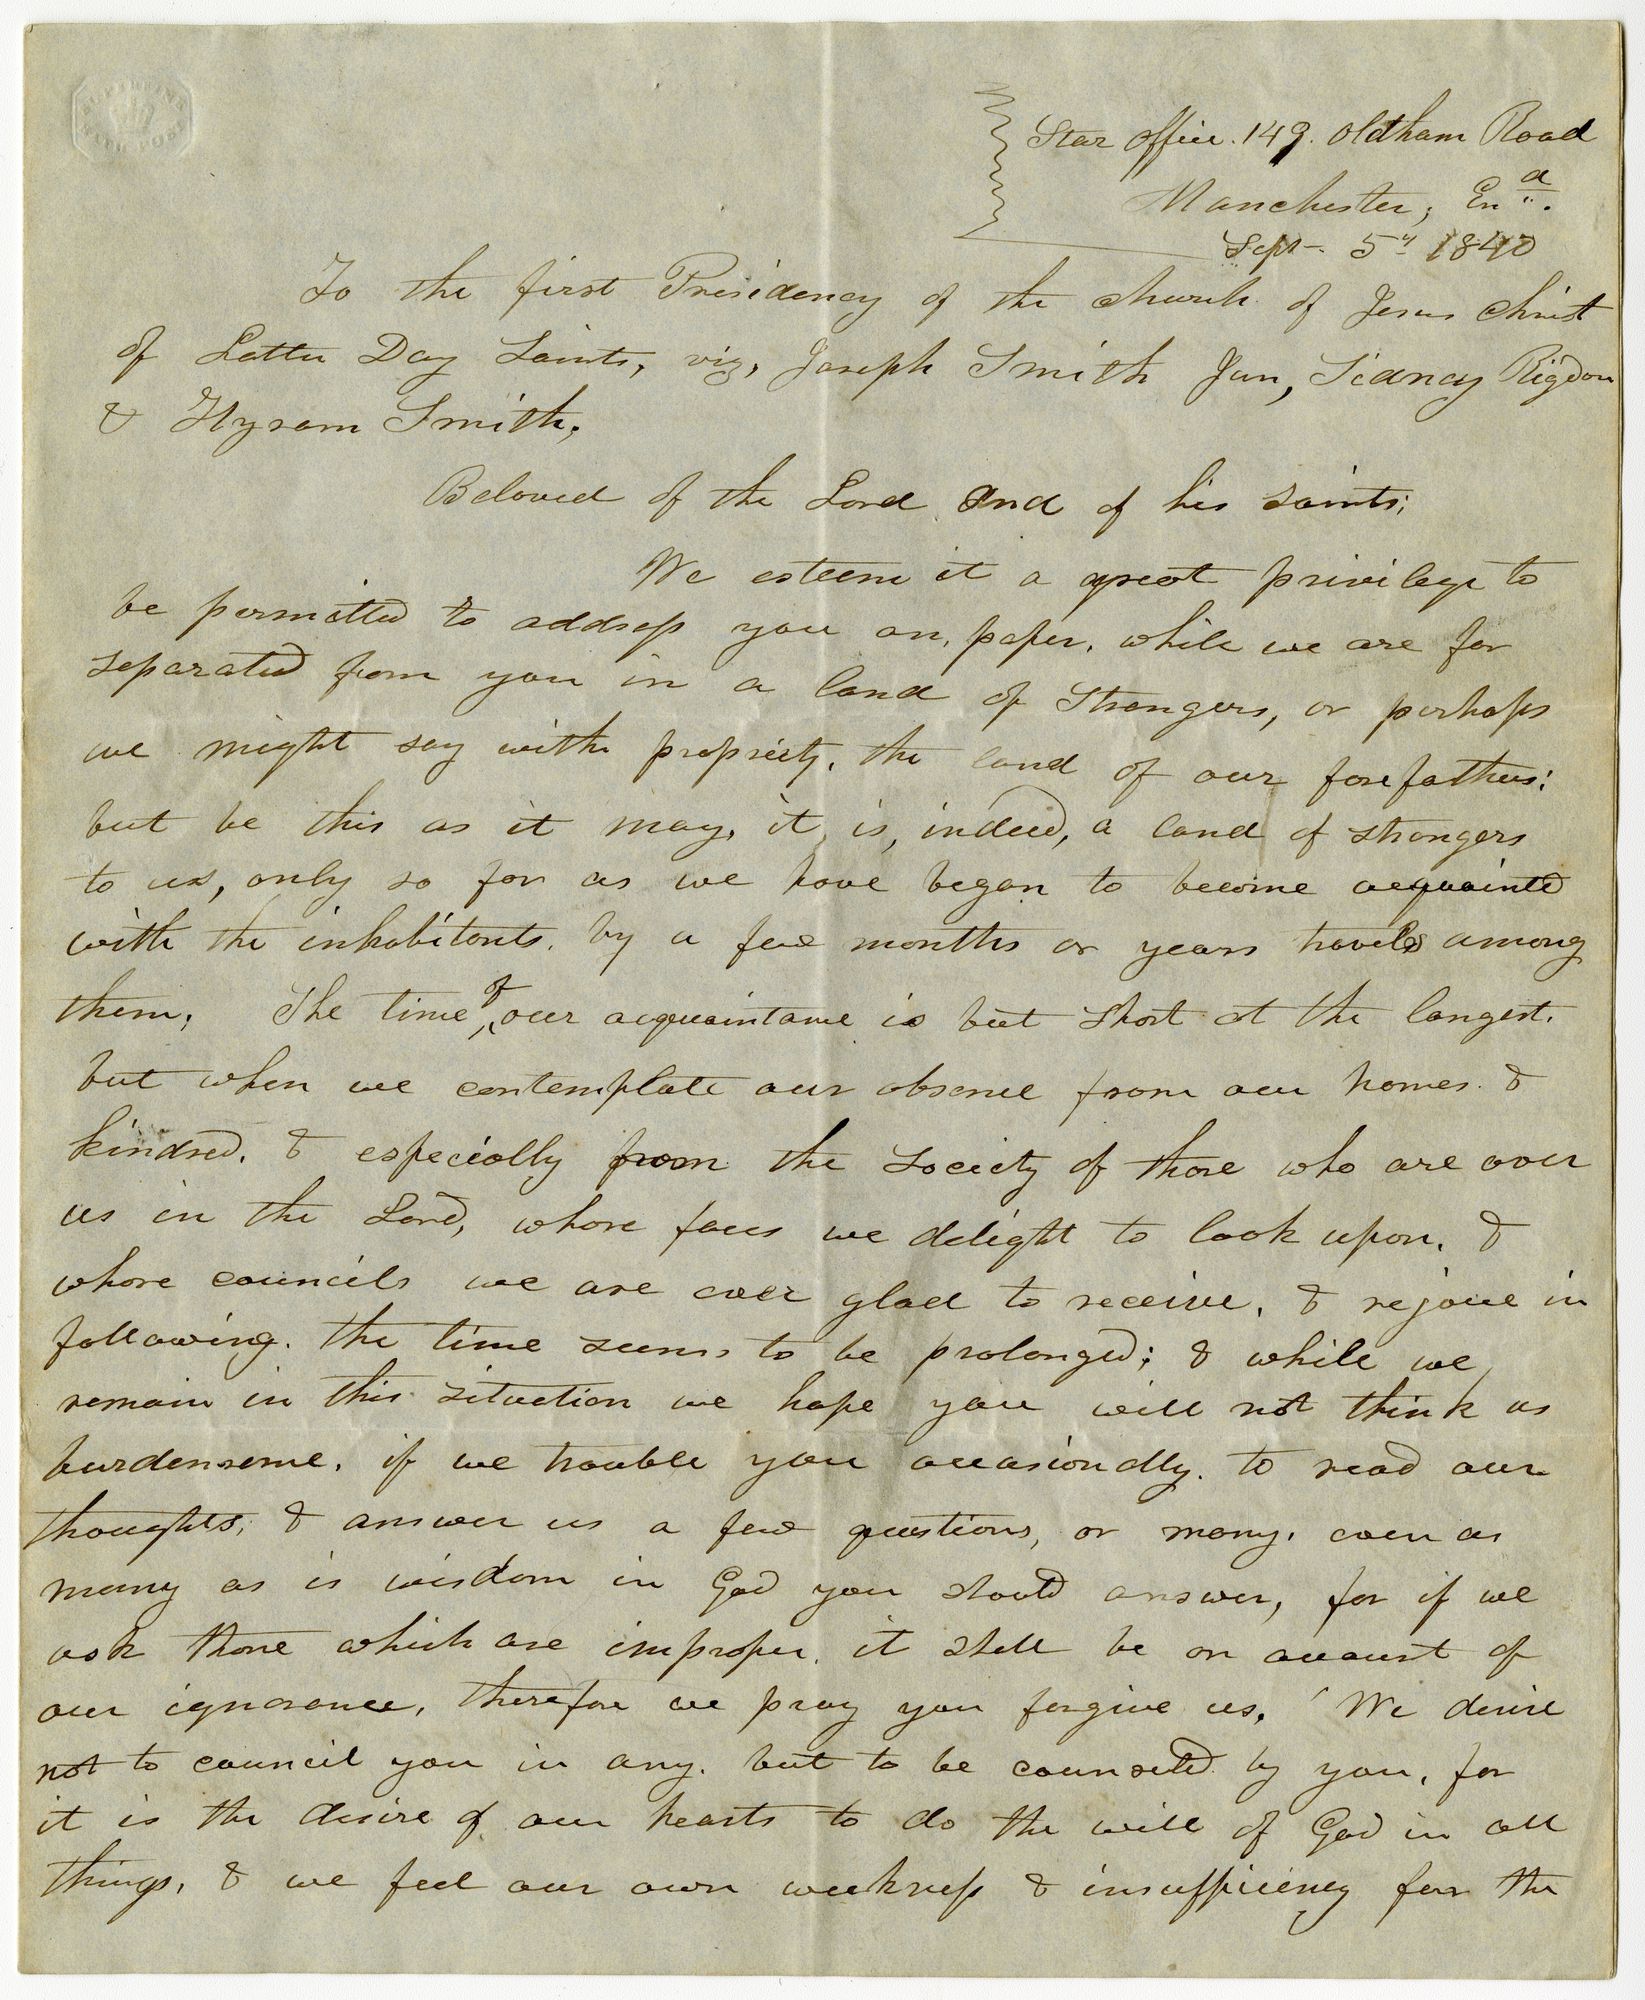 Star office. 149. oldham Road
Manchester, En.d
Sept. 5th 1840
To the first Presidency of the church of Jesus Christ
of Latter Day Saints, viz, Joseph Smith Jun, Sidney Rigdon
& Hyram Smith,
Beloved of the Lord and of his saints;
We esteem it a great privilege to
be permitted to address you on, paper, while we are far
separated from you in a land of strangers, or perhaps
we might say with propriety, the land of our forefathers;
but be this as it may, it, is, indeed, a land of strangers
to us, only so far as we have began to become acquainted
with the inhabitants, by a few months or years travels among
them, The time, of our acquaintance is but short at the longest.
but when we contemplate our absence from our homes. &
kindred, & especially from the society of those who are over
us in the Lord, whose faces we delight to look upon, &
whose councils we are ever glad to receive, & rejoice in
following. the time seems to be prolonged; & while we
remain in this situation we hope you will not think us
burdensome, if we trouble you occasionally. to read our
thoughts, & answer us a few questions, or many, even as
many as is wisdom in God you should answer, for if we
ask those which are improper, it shall be on account of
our ignorance, therefore we pray you forgive us, We desire
not to council you in any. but to be counseled by you, for
it is the desire of our hearts to do the will of God in all
things, & we feel our own weakness & insufficiency for the